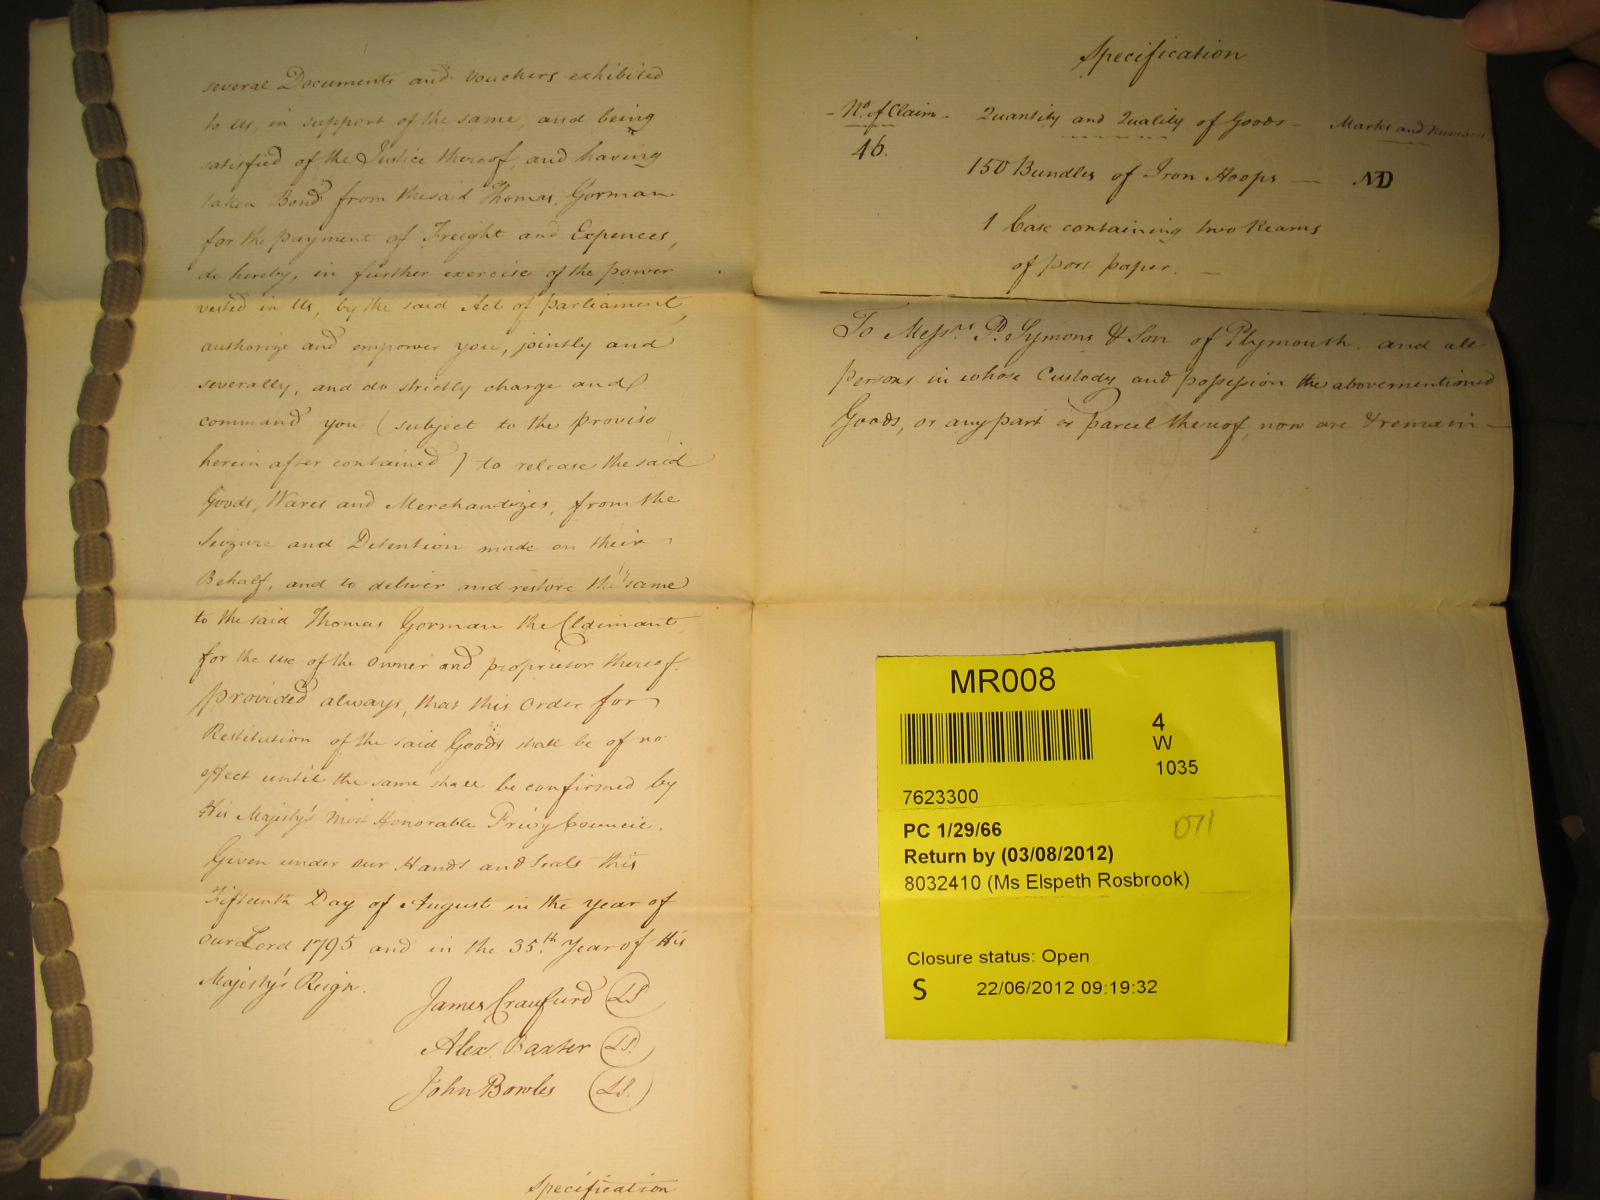 several Documents and vouchers exhibited
to us, in support of the same, and being
satisfied of the Justice thereof, and having
taken Bond from the said Thomas Gorman
for the payment of Freight and Expences,
do hereby, in further exercise of the power
vested in Us, by the said Act of parliament,
authorize and empower you, jointly and
severally, and do strictly charge and
command you (subject to the proviso
herein after contained) to release the said
Goods, Wares and Merchandizes, from the
Seizure and Detention made on their
Behalf, and to deliver and restore the same
to the said Thomas Gorman the Claimant
for the use of the owner and proprietor thereof.
provided always, that this order for
Restitution of the said Goods shall be of no
effect until the same shall be confirmed by
His Majesty's most Honorable Privy Council.
Given under our Hands and Seals this
Fifteenth Day of August in the year of
our Lord 1795 and in the 35th Year of His
Majesty's Reign.
James Craufurd LS
Alex. Baxter LS.
John Bowles LS.
Specification
Specification
No. of Claim - Quantity and Quality of Goods - Marks and Numbers
46. 150 Bundles of Iron Hoops - ND
1 Case containing two Reams
of post paper. -
To Messrs. P. Symons & Son of Plymouth. and all
persons in whose Custody and possession the abovementioned
Goods, or any part or parcel thereof, now are & remain -
MR008
4
W
1035
7623300
PC 1/29/66
071
Return by (03/08/2012)
8032410 (Ms Elspeth Rosbrook)
Closure status: Open
S 22/06/2012 09:19:32